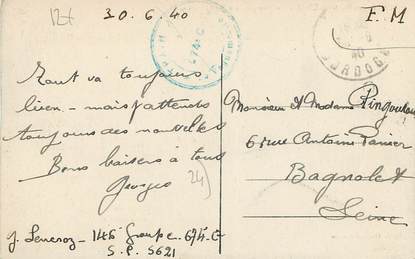 12t
30.6.40
F.M
DORDOGNE
40
Tout va toujours
bien - mais j'attends
toujours des nouvelles
Bons baisers à tous
Georges
24
J. Leneroz - 146 Groupe. 674. C
S.P. 5621
Monsieur et Madame Pingouleau
6 rue Antoine
Bagnolet
Seine